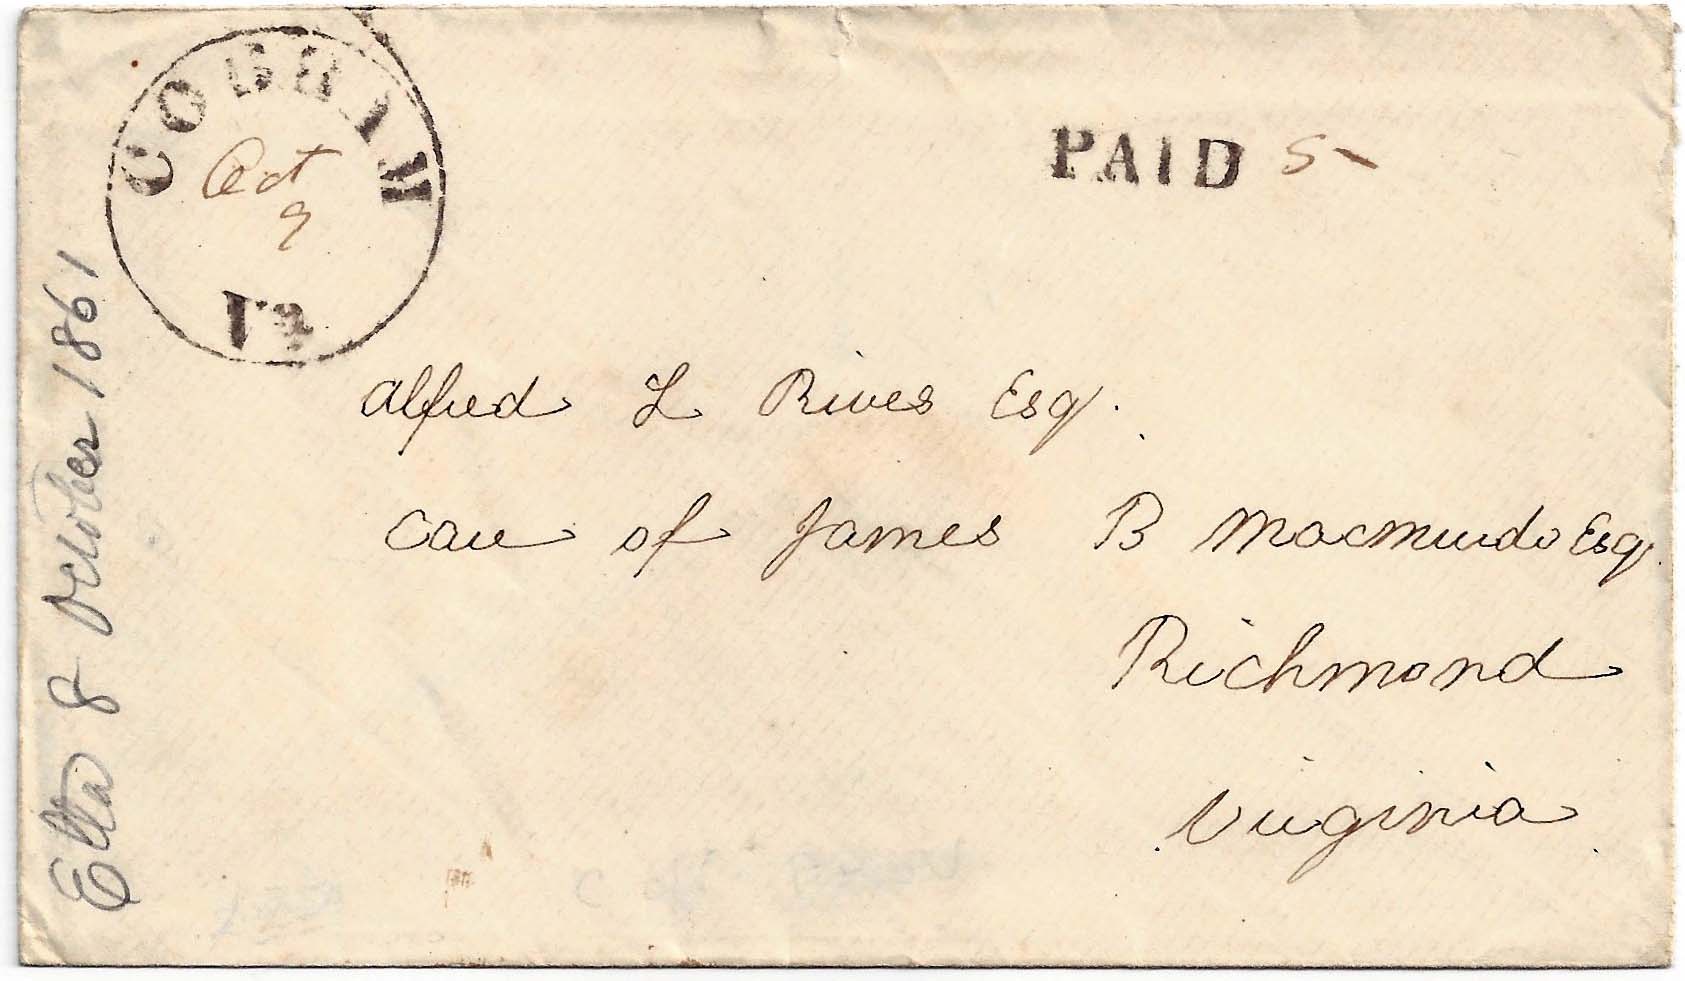 COBHAM
Oct
9
Va
PAID 5
Alfred L Rives Esq.
Care of James B Macmurdo Esq.
Richmond
Virginia
Etta 8 October 1861